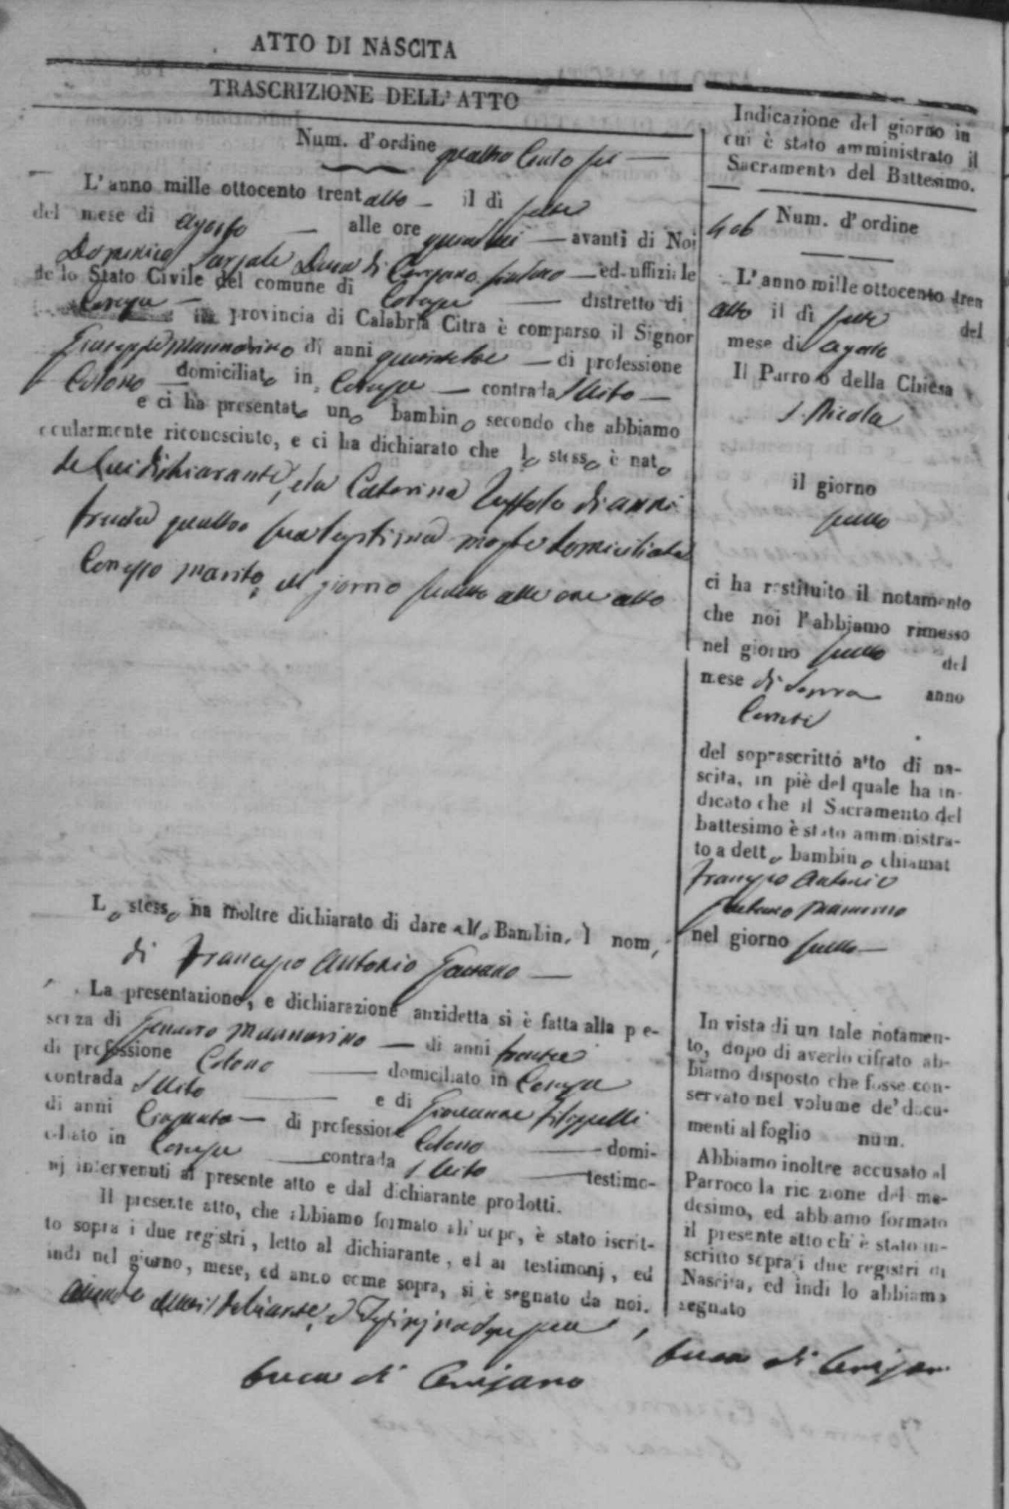 ATTO DI NASCITA
TRASCRIZIONE DELL'ATTO
Num. d'ordine quattro Cento sei
L'anno mille ottocento trent otto il dì sette
del mese di agosto alle ore quindici avanti di Noi
Domenico Sersale Duca di Cerisano Sindaco ed uffiziale
dello Stato Civile del comune di Cosenza distretto di
Cosenza in provincia di Calabria Citra è comparso il Signor
Giuseppe Mannarino di anni di professione
Colono domiciliato in Cosenza contrada S. Vito
e ci ha presentato uno bambino secondo che abbiamo
ocularmente riconosciuto, e ci ha dichiarato che lo stesso è nato
da lui dichiarante, e da Caterina di anni
trenta quattro sua legittima moglie domiciliata
Con esso marito, nel giorno suddetto alle ore otto
Lo stesso ha inoltre dichiarato di dare allo Bambin. I nom,
di Francesco Antonio Gaetano
La presentazione, e dichiarazione anzidetta si è fatta alla pre-
senza di Gennaro Mannarino di anni trenta
di professione Colono domiciliato in Cosenza
contrada S. Vito e di Giovanni Filippelli
di anni Cinquanta di professione Colono domi-
ciliato in Cosenza contrada S. Vito testimo-
nj intervenuti al presente atto e dal dichiarante prodotti.
Il presente atto, che abbiamo formato all'uopo, è stato iscrit-
to sopra i due registri, letto al dichiarante, ed ai testimonj, ed
indi nel giorno, mese, ed anno come sopra, si è segnato da noi.
Duca di Cerisano
Indicazione del giorno in
cui è stato amministrato il
Sacramento del Battesimo.
Num. d'ordine
406
L'anno mille ottocento tren
otto il dì sette del
mese di agosto
Il Parroco della Chiesa
S. Nicola
il giorno
sudd.
ci ha restituito il notamento
che noi l'abbiamo rimesso
nel giorno sudd. del
mese di Sopra anno
Corrente
del soprascritto atto di na-
scita, in piè del quale ha in-
dicato che il Sacramento del
battesimo è stato amministra-
to a detto bambino chiamat
Francesco Antonio
Gaetano Mannarino
nel giorno sudd.
In vista di un tale notamen-
to, dopo di averlo cifrato ab-
biamo disposto che fosse con-
servato nel volume de' docu-
menti al foglio num.
Abbiamo inoltre accusato al
Parroco la ricezione del me-
desimo, ed abbiamo formato
il presente atto ch'è stato in-
scritto sopra i due registri di
Nascita, ed indi lo abbiamo
segnato
Duca di Cerisano